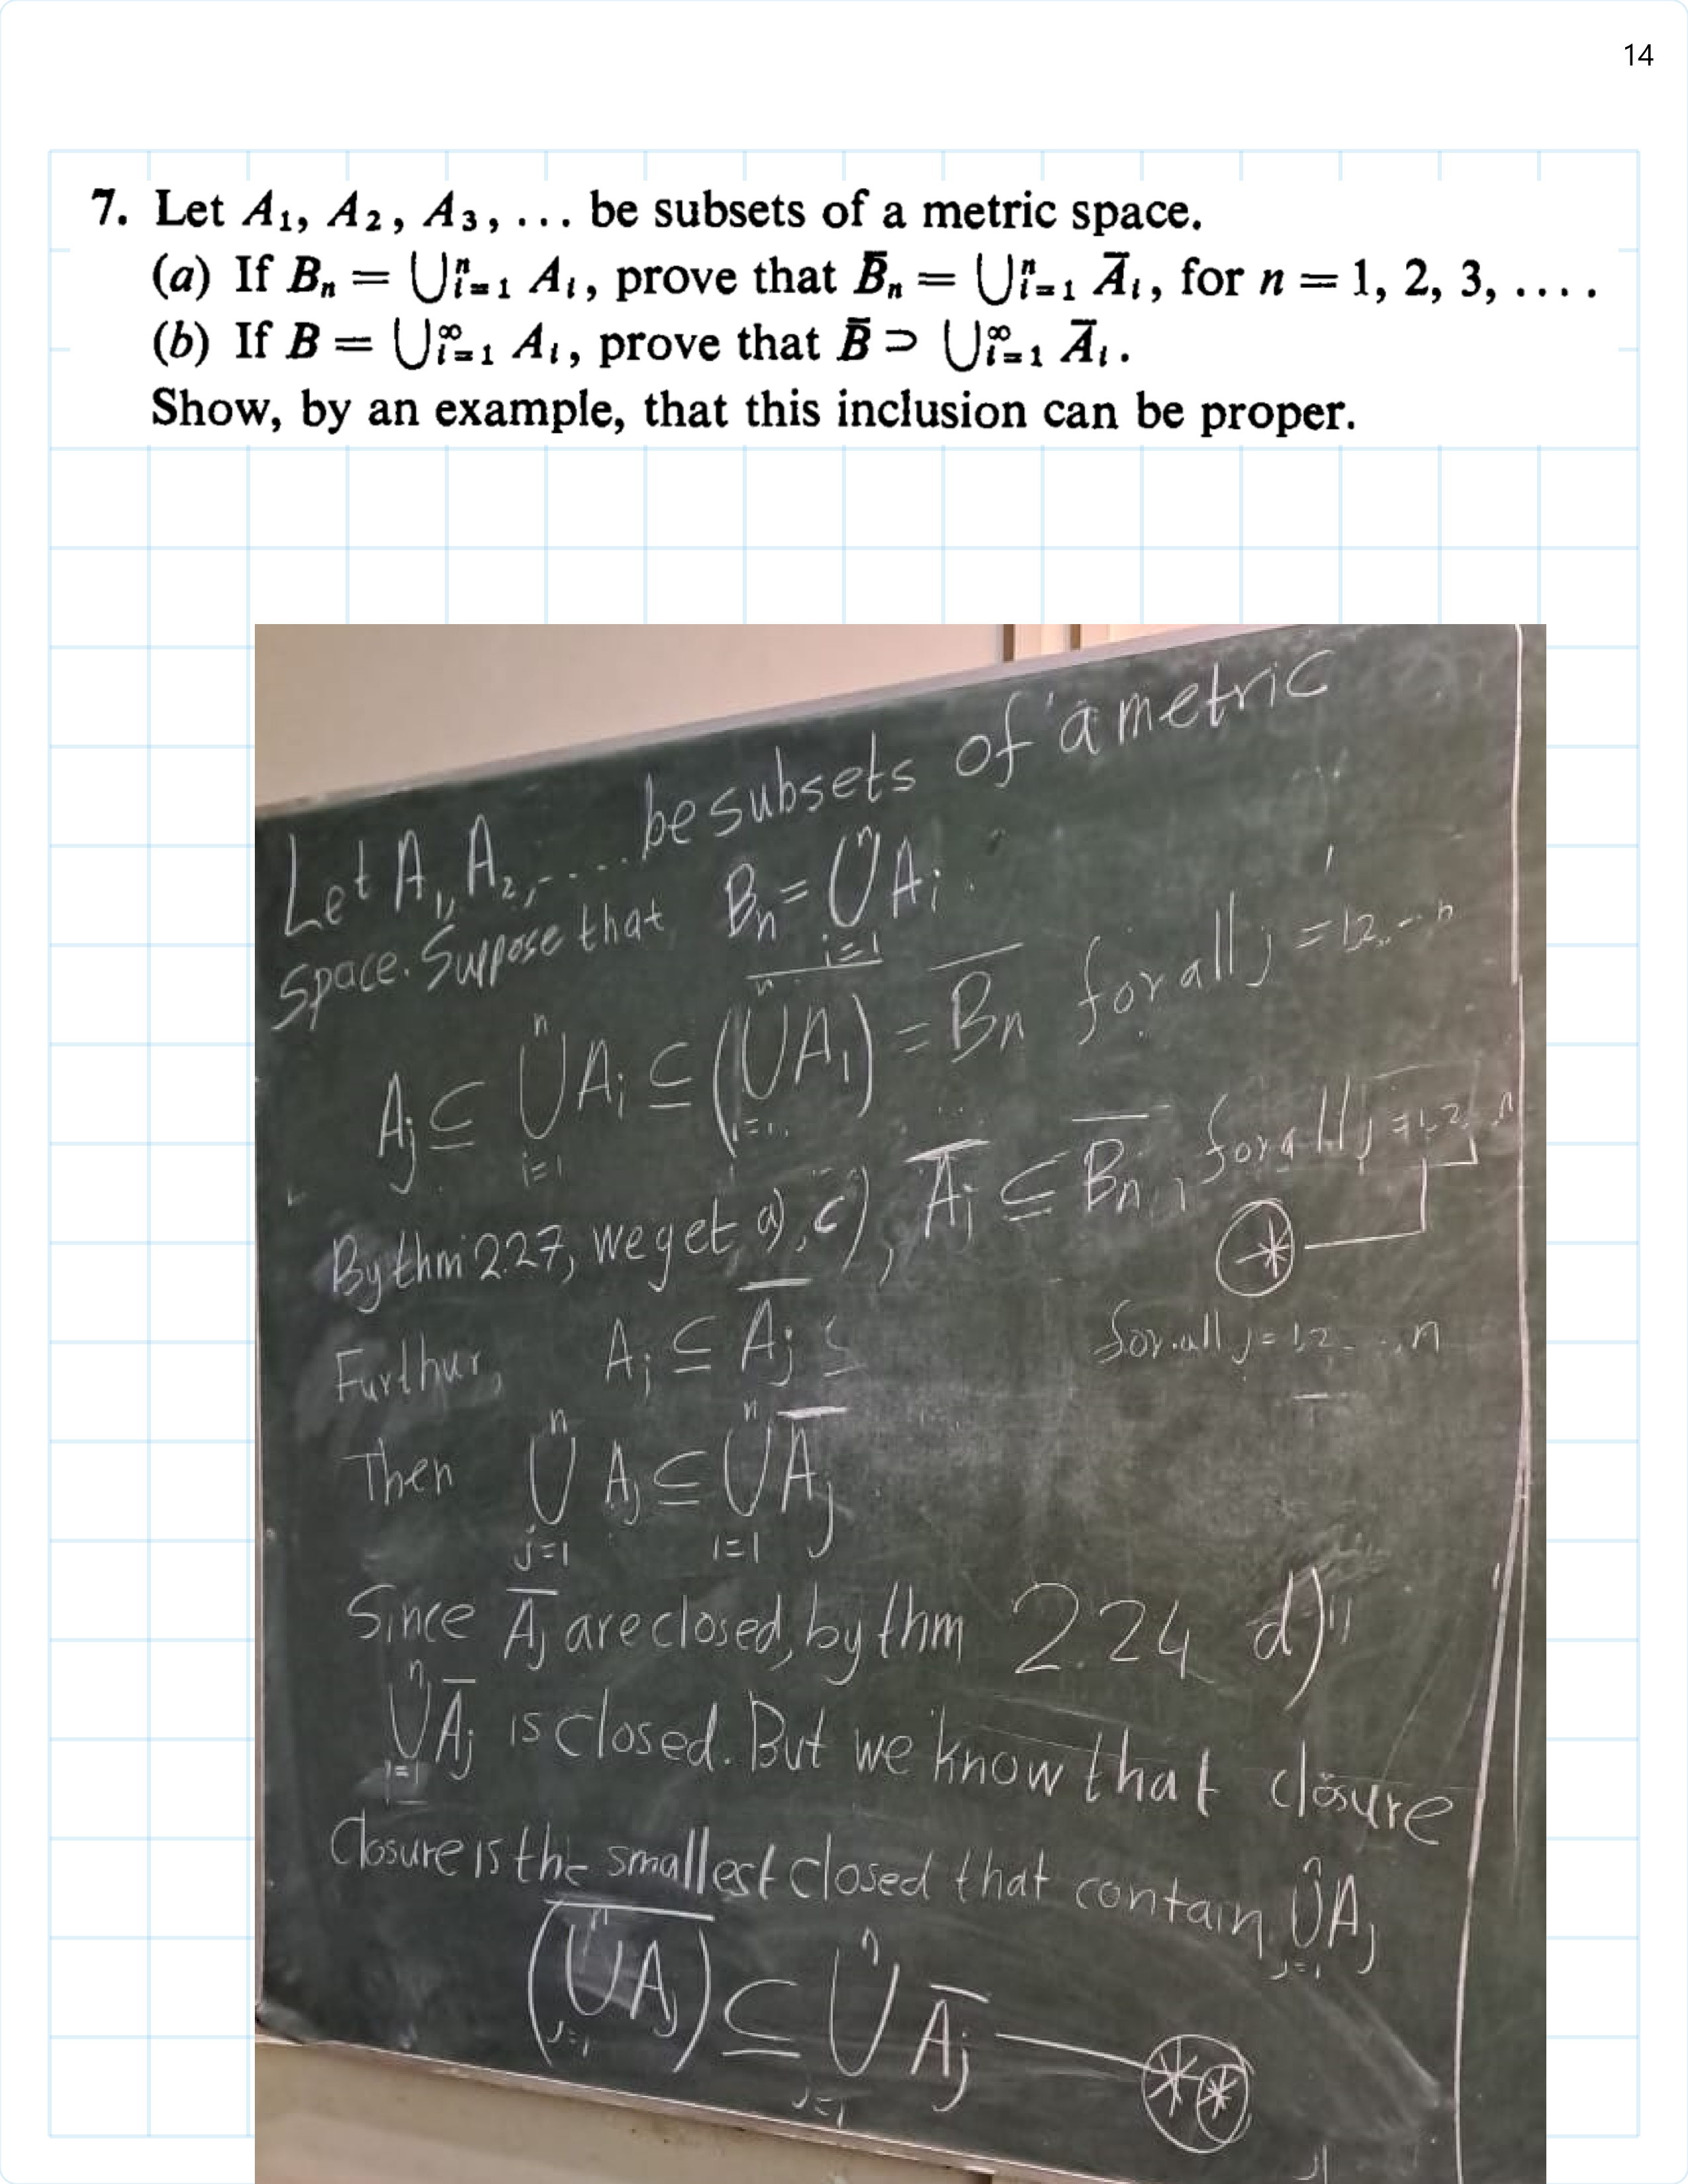 14
7. Let A₁, A₂, A₃, ... be subsets of a metric space.
(a) If Bₙ = ⋃ⁿᵢ₌₁ Aᵢ, prove that B̄ₙ = ⋃ⁿᵢ₌₁ Āᵢ, for n = 1, 2, 3, ....
(b) If B = ⋃^∞ᵢ₌₁ Aᵢ, prove that B̄ ⊃ ⋃^∞ᵢ₌₁ Āᵢ.
Show, by an example, that this inclusion can be proper.
Let A₁, A₂, ..... be subsets of a metric
Space. Suppose that Bₙ = ⋃ⁿᵢ₌₁ Aᵢ
Aⱼ ⊆ ⋃ⁿᵢ₌₁ Aᵢ ⊆ \overline{(⋃ⁿᵢ₌₁ Aᵢ)} = B̄ₙ for all j = 1,2,...n
By thm 2.27, we get a), c), Āⱼ ⊆ B̄ₙ, for all j = 1,2,..n
⊛
Furthur, Aⱼ ⊆ Āⱼ ⊆ for all j = 1,2...,n
Then ⋃ⁿⱼ₌₁ Aⱼ ⊆ ⋃ⁿᵢ₌₁ Āⱼ
Since Āⱼ are closed, by thm 2.24 d)
⋃ⁿᵢ₌₁ Āⱼ is closed. But we know that closure
Closure is the smallest closed that contain ⋃ⁿⱼ₌₁ Aⱼ
\overline{(⋃ⁿⱼ₌₁ Aⱼ)} ⊆ ⋃ⁿⱼ₌₁ Āⱼ — ⊛⊛